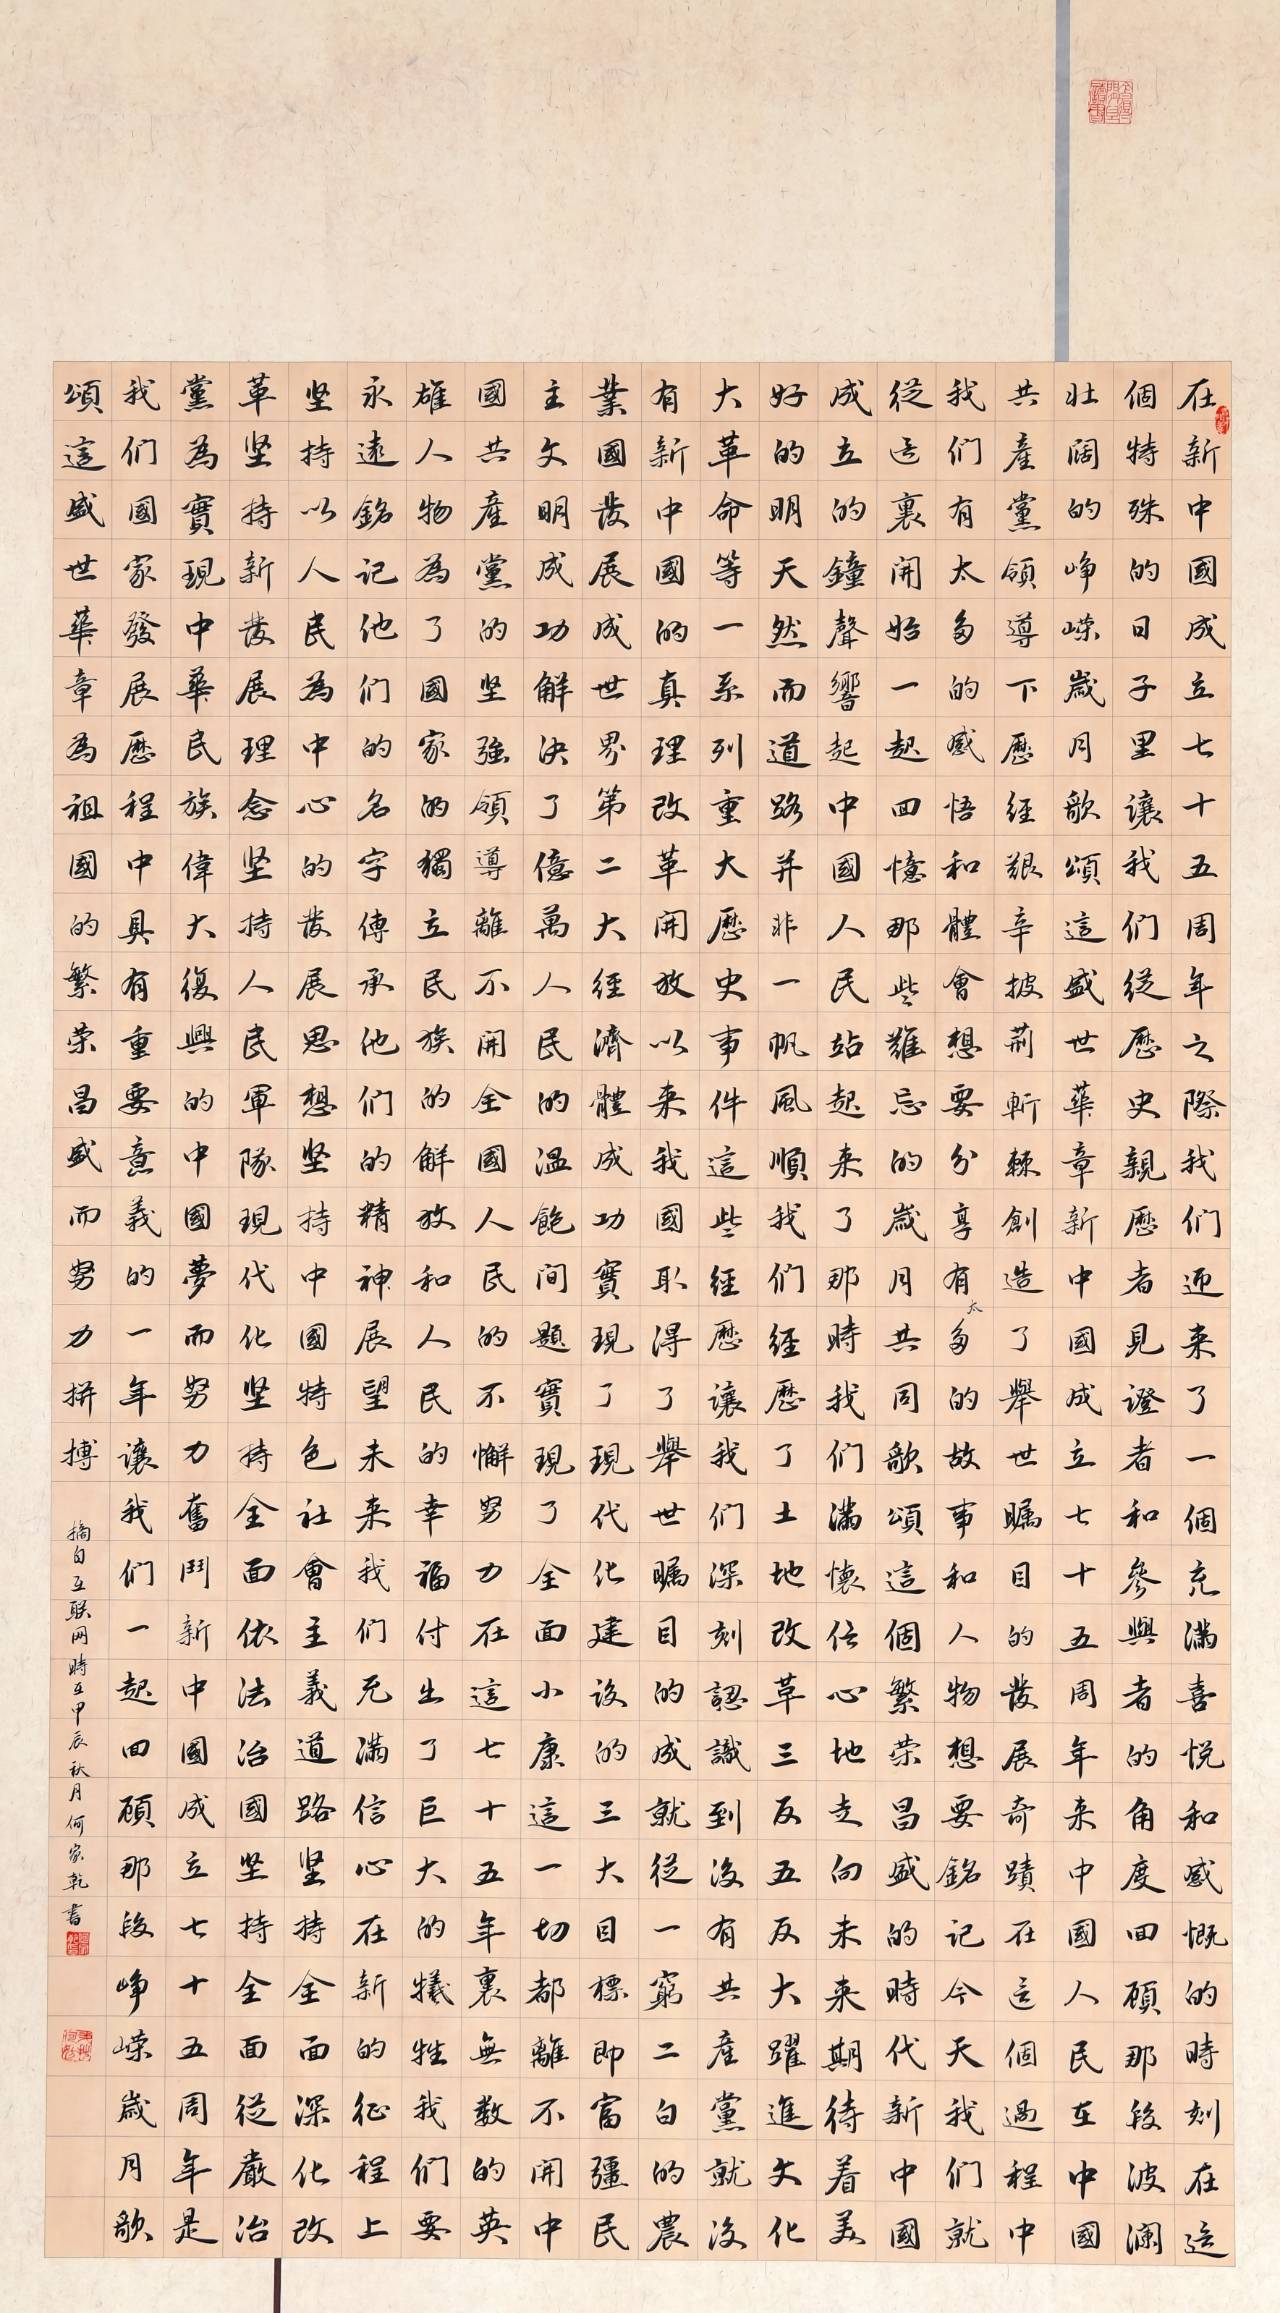 在新中國成立七十五周年之際我们迎来了一個充滿喜悦和感慨的時刻在這
個特殊的日子里讓我们從歷史親歷者見證者和參與者的角度回顧那段波瀾
壯闊的峥嵘歲月歌頌這盛世華章新中國成立七十五周年来中國人民在中國
共產黨領導下歷經艱辛披荆斬棘創造了舉世瞩目的發展奇蹟在這個過程中
我们有太多的感悟和體會想要分享有太多的故事和人物想要銘記今天我们就
從這裏開始一起回憶那些難忘的歲月共同歌頌這個繁荣昌盛的時代新中國
成立的鐘聲響起中國人民站起来了那時我们滿懷信心地走向未来期待着美
好的明天然而道路并非一帆風順我们經歷了土地改革三反五反大躍進文化
大革命等一系列重大歷史事件這些經歷讓我们深刻認識到没有共產黨就没
有新中國的真理改革開放以来我國取得了舉世瞩目的成就從一窮二白的農
業國發展成世界第二大經濟體成功實現了現代化建設的三大目標即富疆民
主文明成功解決了億萬人民的温飽间題實現了全面小康這一切都離不開中
國共產黨的坚強領導離不開全國人民的不懈努力在這七十五年裏無數的英
雄人物為了國家的獨立民族的解放和人民的幸福付出了巨大的犧牲我们要
永遠銘記他们的名字傳承他们的精神展望未来我们充滿信心在新的征程上
坚持以人民為中心的發展思想坚持中國特色社會主義道路坚持全面深化改
革坚持新發展理念坚持人民軍隊現代化坚持全面依法治國坚持全面從嚴治
黨為實現中華民族偉大復興的中國夢而努力奮鬥新中國成立七十五周年是
我们國家發展歷程中具有重要意義的一年讓我们一起回顧那段峥嵘歲月歌
頌這盛世華章為祖國的繁荣昌盛而努力拼搏
摘自互联网時在甲辰秋月何家乾書